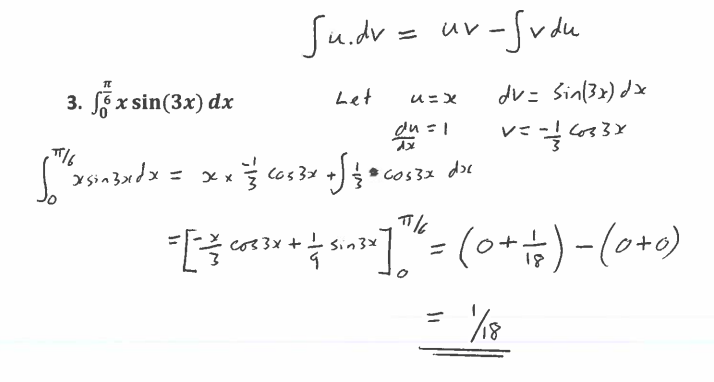 ∫u.dv = uv - ∫v du
3. ∫₀^(π/6) x sin(3x) dx Let u = x dv = sin(3x) dx
du/dx = 1 v = -1/3 cos 3x
∫₀^(π/6) x sin 3x dx = x × -1/3 cos 3x + ∫ 1/3 • cos 3x dx
= [-x/3 cos 3x + 1/9 sin 3x]₀^(π/6) = (0 + 1/18) - (0+0)
= 1/18